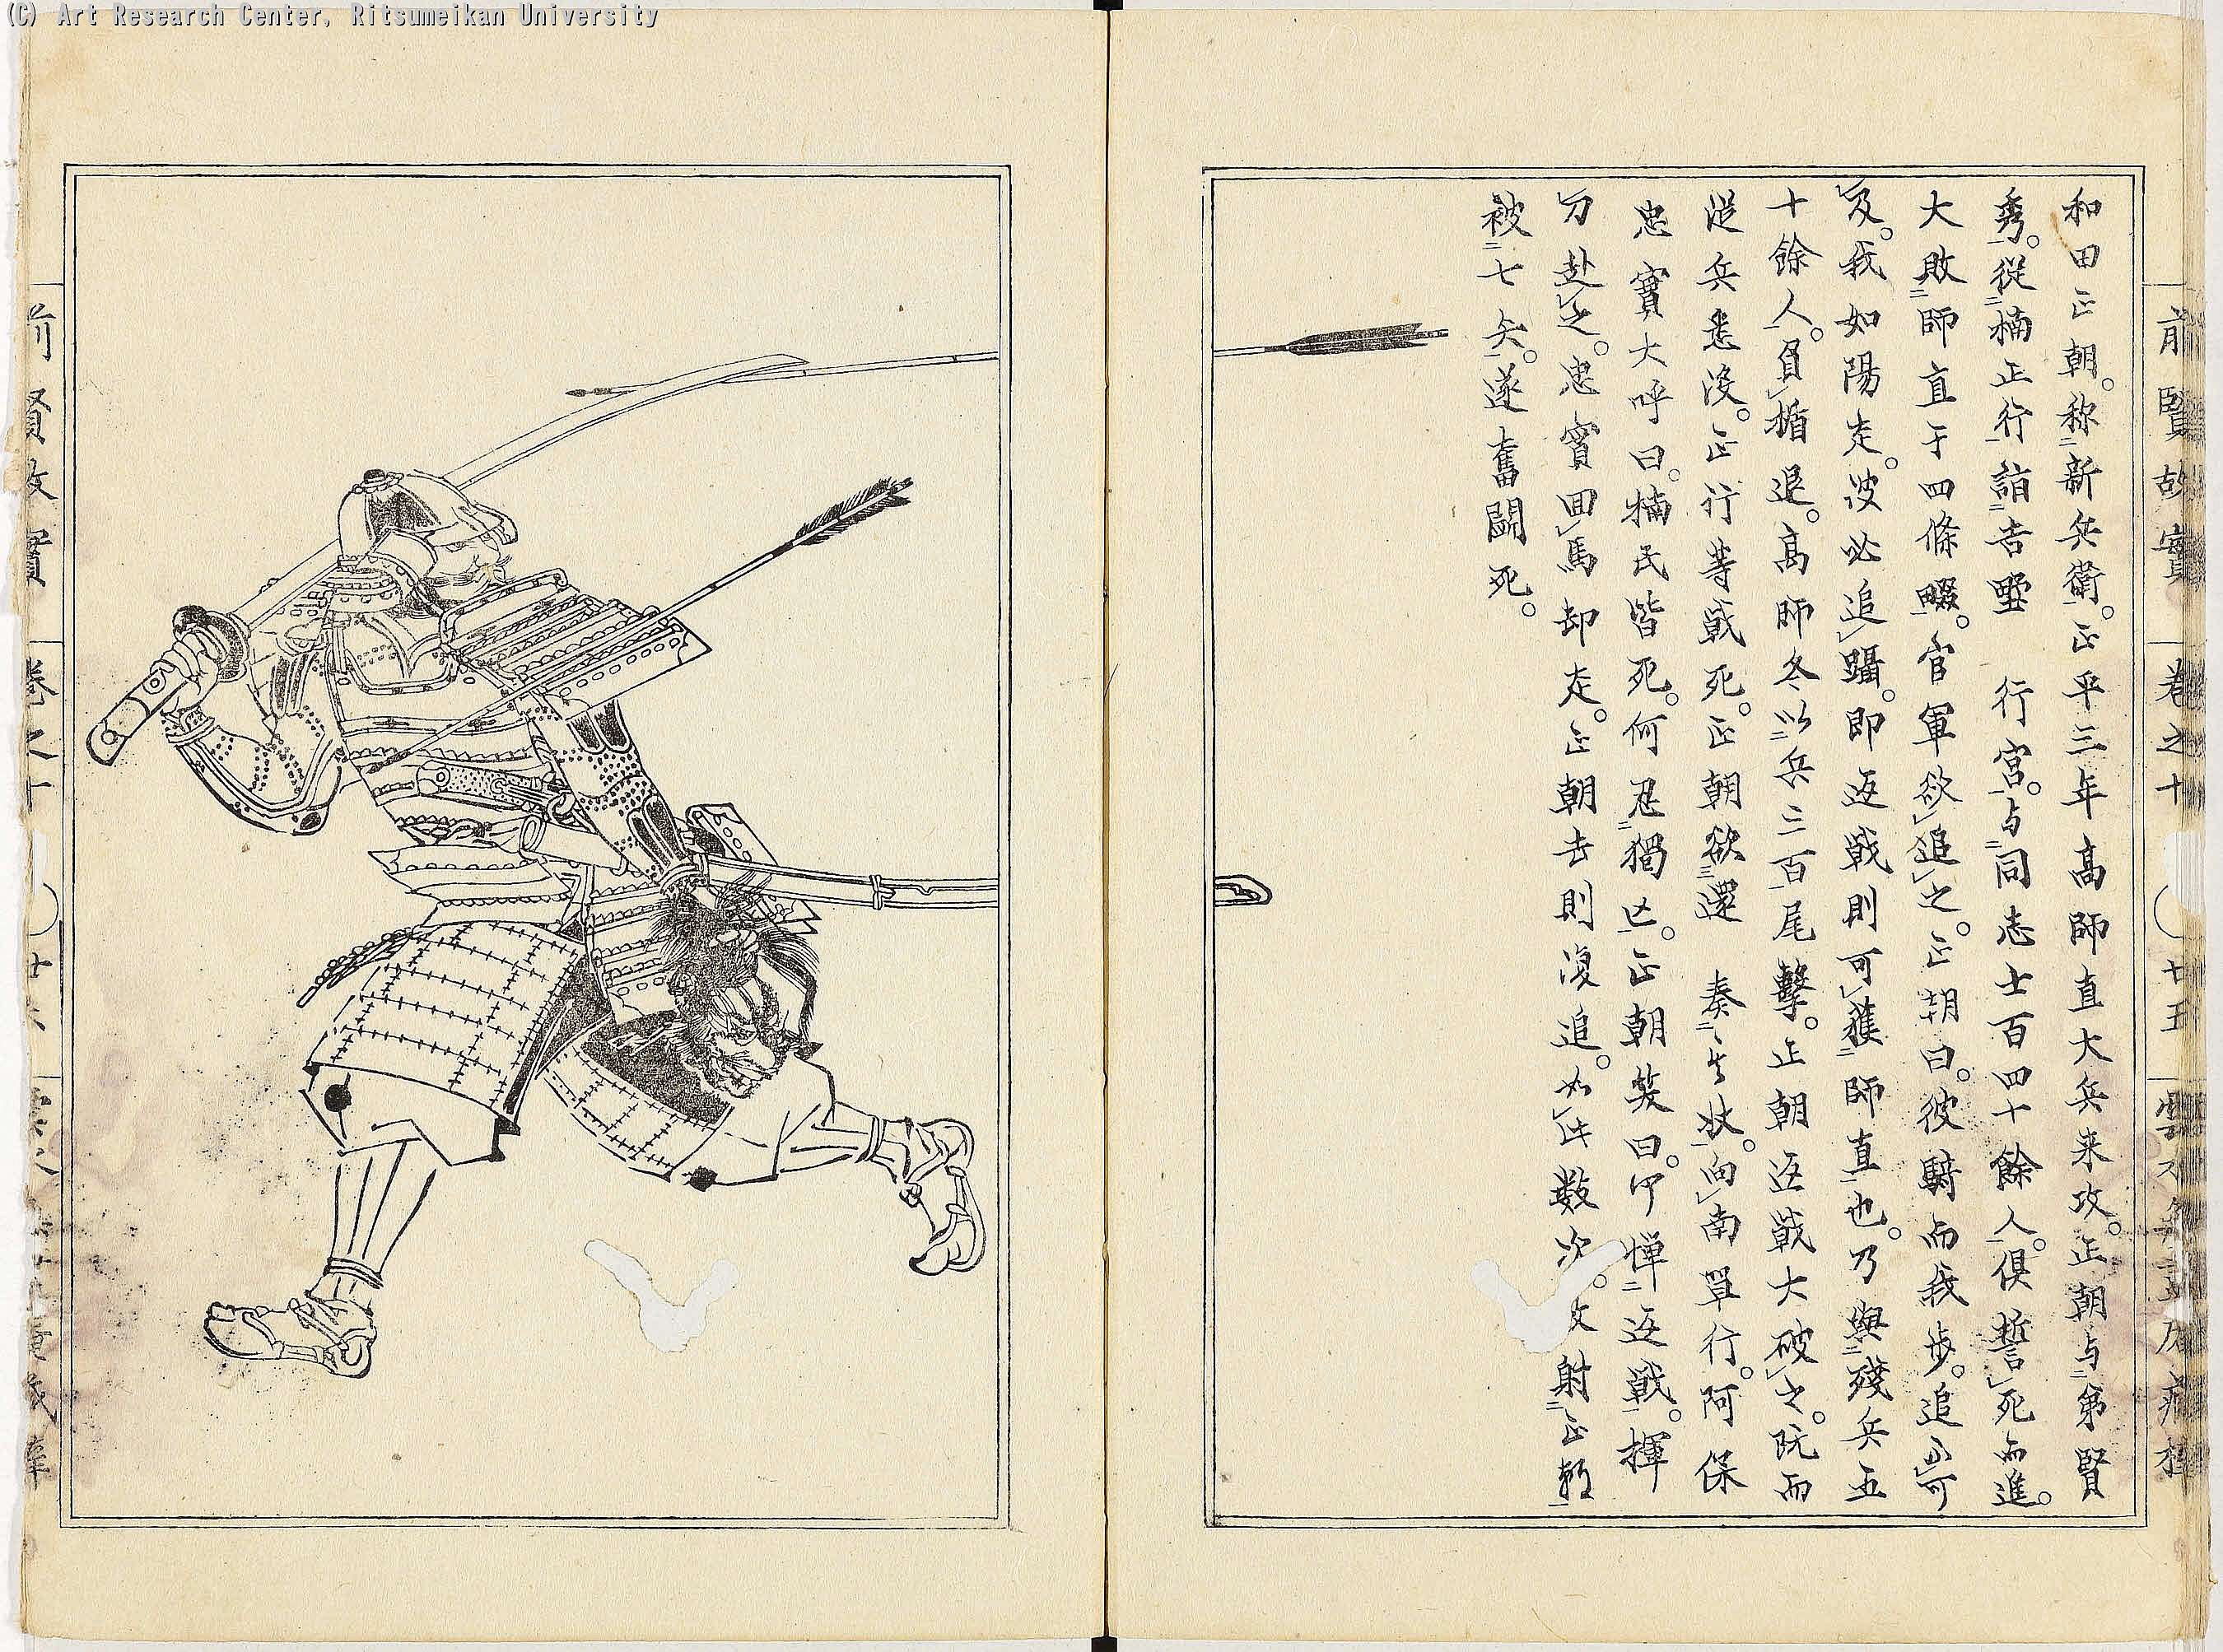 (C) Art Research Center, Ritsumeikan University
前賢故實 卷之十 廿五
和田正朝。称新兵衛。正平三年高師直大兵来攻。正朝与第賢
秀。従楠正行詣吉野 行宮。与同志士百四十餘人。倶誓死而進。
大敗師直于四條畷。官軍欲追之。正朝曰。彼騎而我歩。追不可
及。我如陽走。彼必追躡。即返戦則可獲師直也。乃與殘兵五
十餘人。負楯退。高師冬以兵三百尾擊。正朝返戦大破之。既而
従兵悉没。正行等戦死。正朝欲還 奏其状。向南単行。阿保
忠實大呼曰。楠氏皆死。何忍獨亡。正朝笑曰。何憚返戦。揮
刀赴之。忠實回馬却走。正朝去則復追。如此數次。 射正朝
被七矢。遂奮闘死。
前賢故實 卷之十